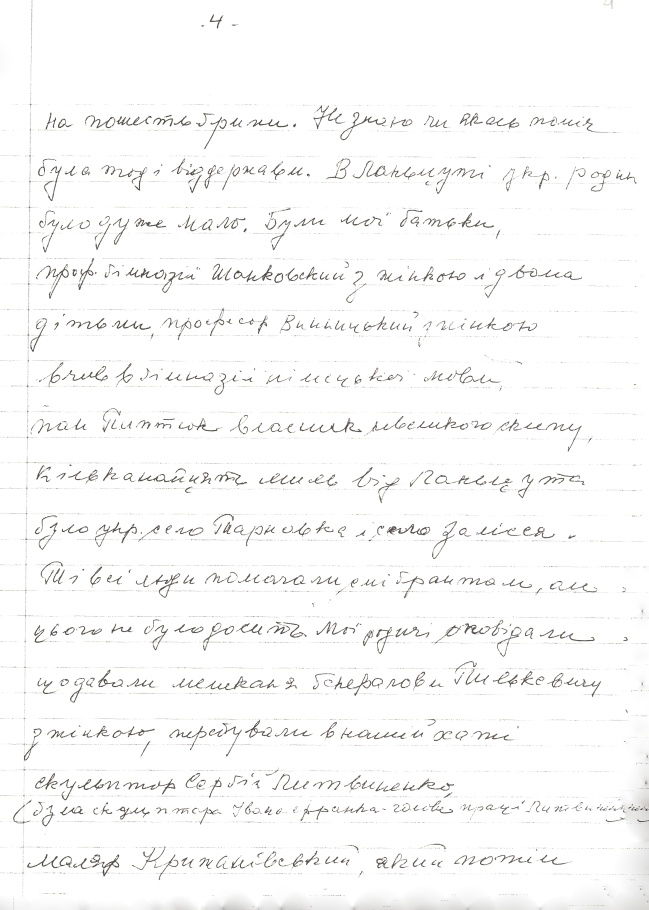 - 4 -
на пошесть грипи. Не знаю чи якась поміч
була тоді від держави. В Ланьцуті укр. родин
було дуже мало. Були мої батьки,
проф. гімназії Шанковський з жінкою і двома
дітьми, професор Винницький з жінкою
вчив в гімназії німецької мови,
пан Пиптюк власник невеликого склепу,
Кільканайцять миль від Ланьцута
було укр. село Тарновка і село Залісся.
Ті всі люди помагали емігрантам, але
цього не було досить. Мої родичі оповідали
що давали мешканя Генералови Пількевичу
з жінкою, перебували в нашій хаті
скульптор Сергій Литвиненко,
(була скулптора Івана Франка - голови праці Литвиненка)
маляр Крижанівський, який потім